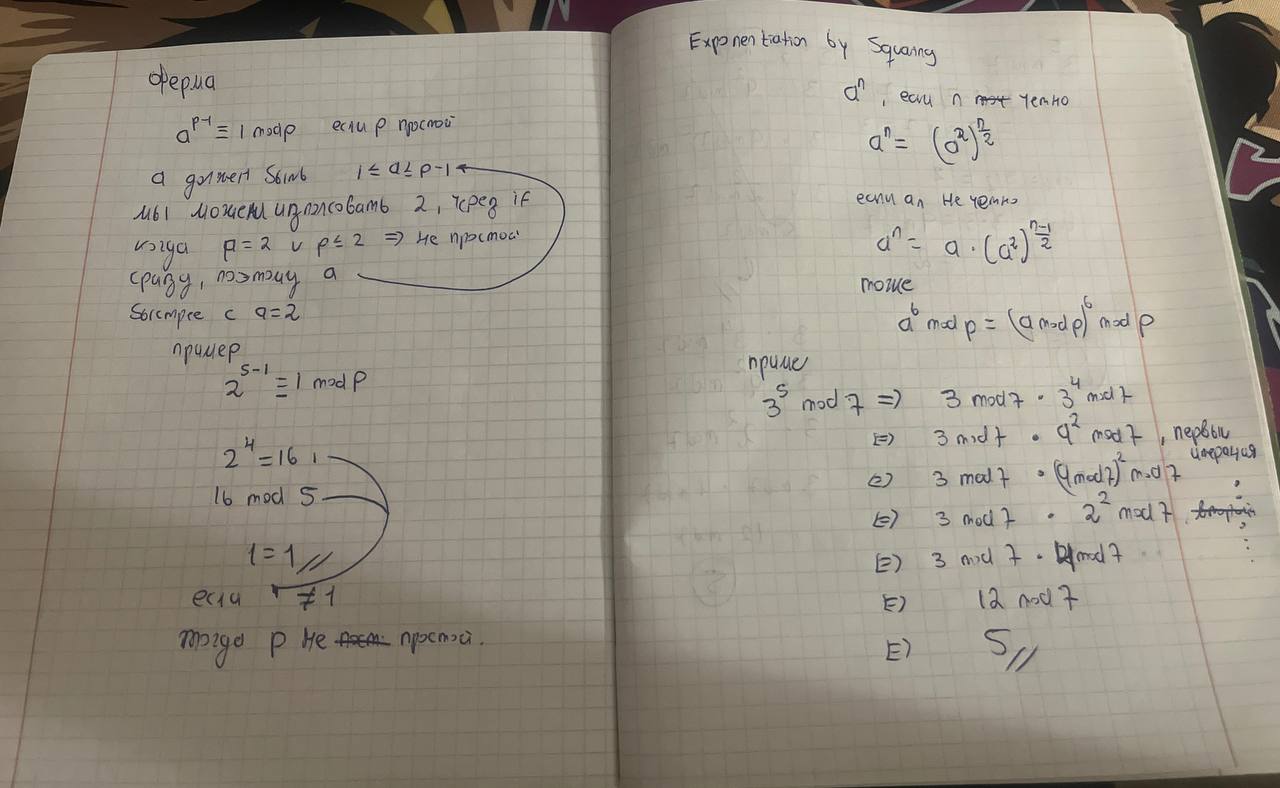 Ферма
a^{p-1} ≡ 1 mod p если p простой
a должен быть 1 ≤ a ≤ p-1
мы можем использовать 2, через if
когда p = 2 и p ≤ 2 ⇒ не простой
сразу, поэтому a
быстрее с a=2
пример
2^{5-1} ≡ 1 mod p
2^4 = 16
16 mod 5
1 = 1 //
если ≠ 1
тогда p не простой.
Exponentiation by Squaring
a^n, если n четно
a^n = (a^2)^{n/2}
если n не четно
a^n = a · (a^2)^{(n-1)/2}
тоже
a^6 mod p = (a mod p)^6 mod p
приме
3^5 mod 7 ⇒ 3 mod 7 · 3^4 mod 7
⇒ 3 mod 7 · 9^2 mod 7, первый
итерация
⇒ 3 mod 7 · (9 mod 7)^2 mod 7
⇒ 3 mod 7 · 2^2 mod 7
⇒ 3 mod 7 · 4 mod 7
⇒ 12 mod 7
⇒ 5 //